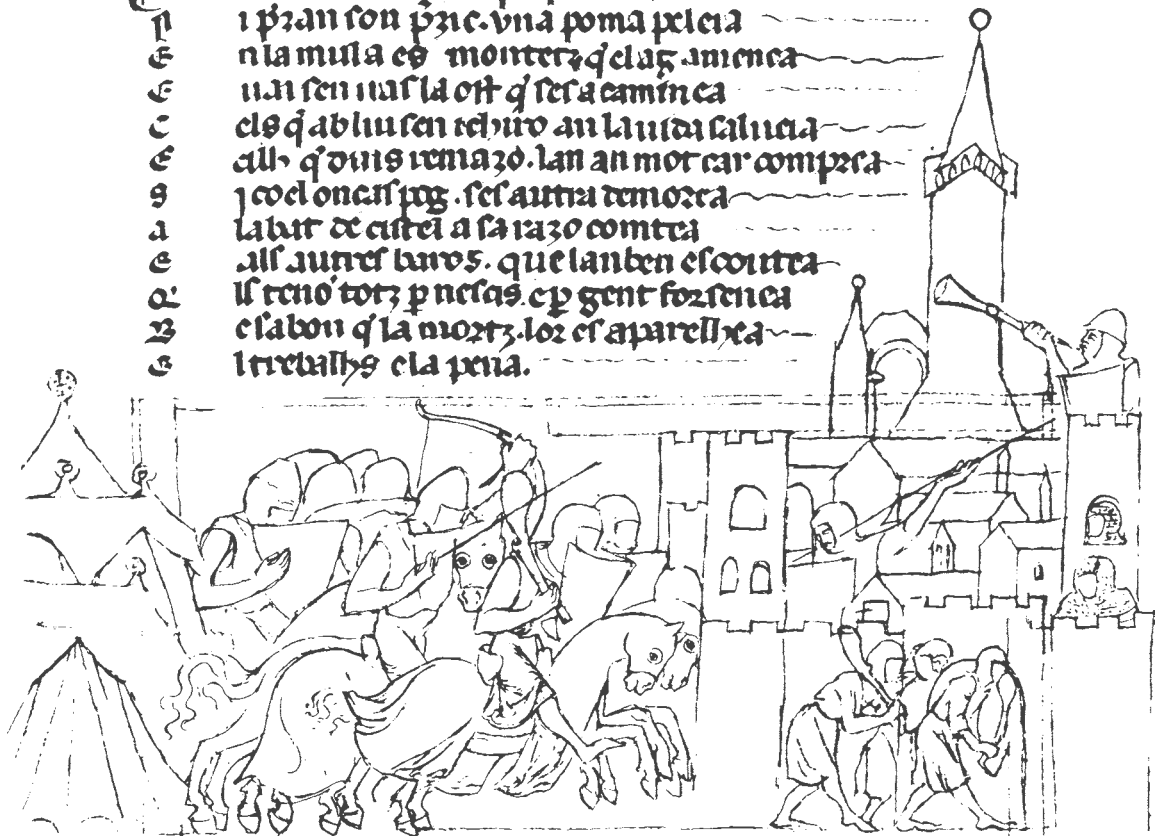 N i p̃zan son p̃zic. una poma peleia
E n la mula es montetz q̃ el ag amenea
E uai sen uas la ost q̃ ses acaminea
C els q̃ ab lui sen ichiro an la uida salueia
E cilh q̃ dins remazo. lan an mot car compzea
S i co el oncas pog. ses autra demorea
A labat de cistel a sa razo comtea
E als autres baros. que lan ben escoutea
Q ls teno totz p̱ nescis. e p̱ gent forsenea
B e sabon q̃ la mortz. lor es aparelhea
E l trebalhs e la pena.